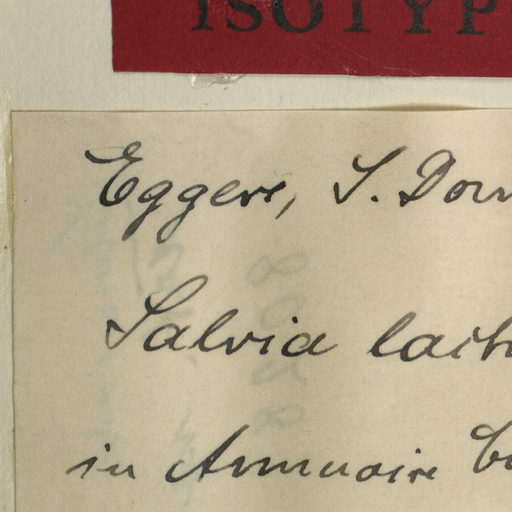 ISOTYP
Eggers, S. Dom
Salvia lach
in Annuaire